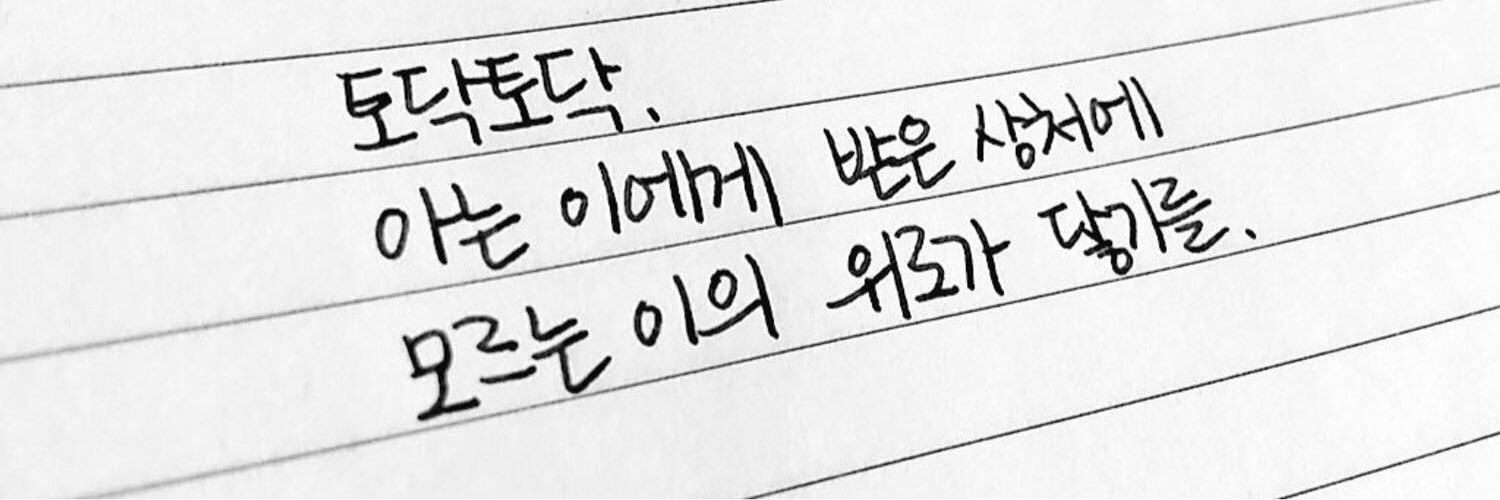 토닥토닥.
아는 이에게 받은 상처에
모르는 이의 위로가 닿기를.